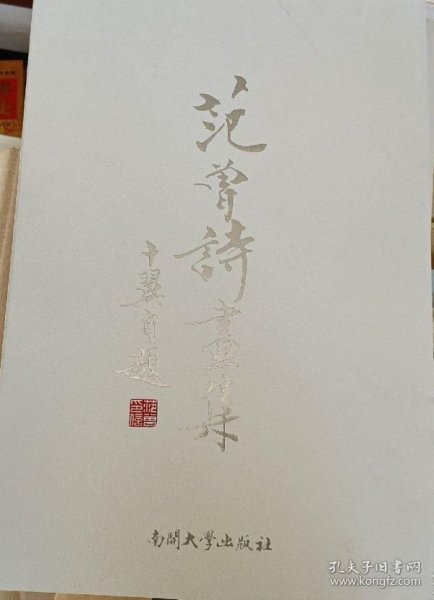 范曾詩畫集
十翼自題
南開大學出版社
孔夫子旧书网
www.kongfz.com